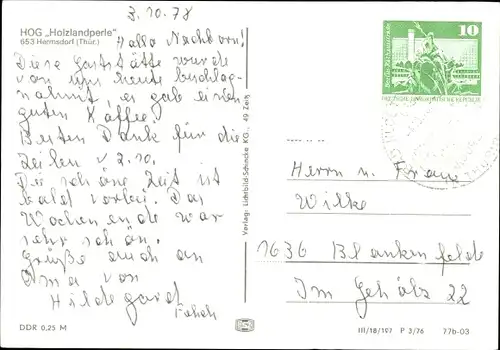 3.10.78
HOG „Holzlandperle"
653 Hermsdorf (Thür.)
Hallo Nachbarn!
Diese Gaststätte wurde
von uns heute beschlag-
nahmt, es gab einen
guten Kaffee.
Besten Dank für die
Zeilen v. 2.10.
Die schöne Zeit ist
bald vorbei. Das
Wochenende war
sehr schön.
Grüße auch an
Oma von
Hildegard
DDR 0,25 M
Verlag: Lichtbild-Schincke KG., 49 Zeitz
10
Berlin, Rathausstraße
DEUTSCHE DEMOKRATISCHE REPUBLIK
Herrn u. Frau
Wilke
1636 Blankenfelde
Im Gehölz 22
III/18/107 P 3/76 77b-03